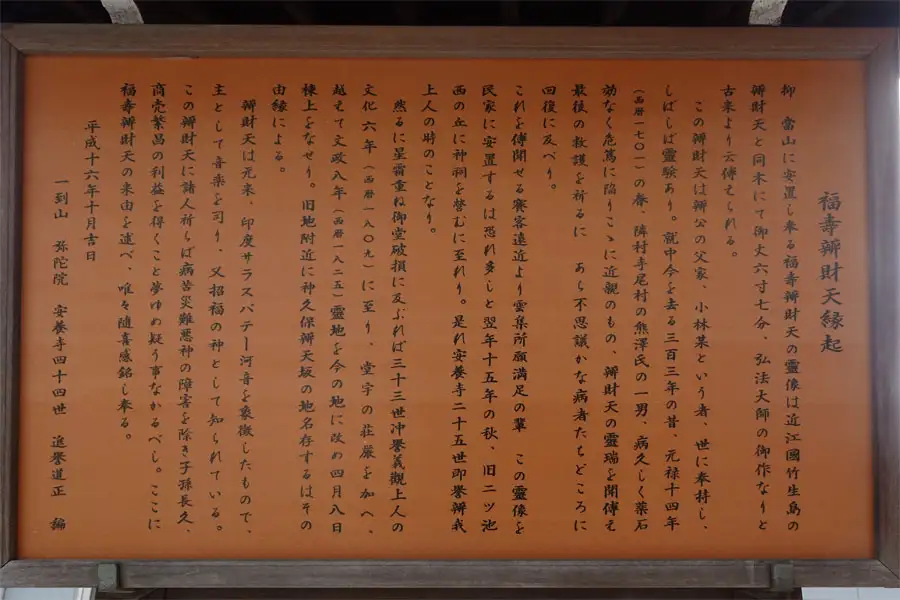 福壽辧財天縁起
抑 當山に安置し奉る福壽辧財天の靈像は近江國竹生島の
辧財天と同木にて御丈六寸七分、弘法大師の御作なりと
古来より云傳えられる。
この辧財天は辧公の父家、小林某という者、世に奉持し、
しばしば靈験あり。就中今を去る三百三年の昔、元禄十四年
(西暦一七〇一)の春、隣村寺尾村の熊澤氏の一男、病久しく薬石
効なく危篤に陥りこゝに近親のもの、辧財天の靈瑞を聞傳え
最後の救護を祈るに あら不思議かな病者たちどころに
回復に及べり。
これを傳聞せる賽客遠近より雲集所願満足の輩 この靈像を
民家に安置するは恐れ多しと翌年十五年の秋、旧二ツ池
西の丘に神祠を営むに至れり。是れ安養寺二十五世即誉辧我
上人の時のことなり。
然るに星霜重ね御堂破損に及ぶれば三十三世冲誉義觀上人の
文化六年(西暦一八〇九)に至り、堂宇の荘厳を加へ、
越えて文政八年(西暦一八二五)靈地を今の地に改め四月八日
棟上をなせり。旧地附近に神久保辧天坂の地名存するはその
由縁による。
辧財天は元来、印度サラスバテー河音を表徴したもので、
主として音楽を司り、又招福の神として知られている。
この辧財天に諸人祈らば病苦災難悪神の障害を除き子孫長久、
商売繁昌の利益を得くこと夢ゆめ疑う事なかるべし。ここに
福壽辧財天の来由を述べ、唯々随喜感銘し奉る。
平成十六年十月吉日
一到山 弥陀院 安養寺四十四世 進誉道正 編